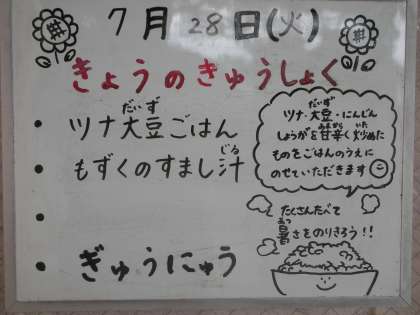 7月28日(火)
きょうのきゅうしょく
だいず
・ツナ大豆ごはん
じる
・もずくのすまし汁
・
・ぎゅうにゅう
だいず
ツナ・大豆・にんじん
あまから いた
しょうがを甘辛く炒めた
ものをごはんのうえに
のせていただきます
たくさんたべて
あつ
暑さをのりきろう!!